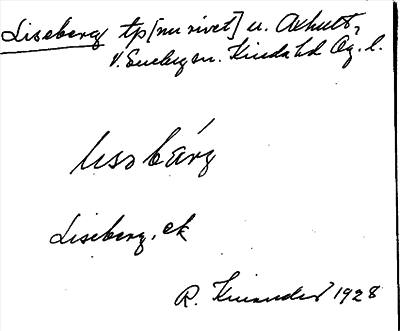 Liseberg tp [nu rivet] u. Axhult,
V. Eneby sn. Kinda hd Ög. l.
lissbárg
Liseberg. ek
R. Kinander 1928